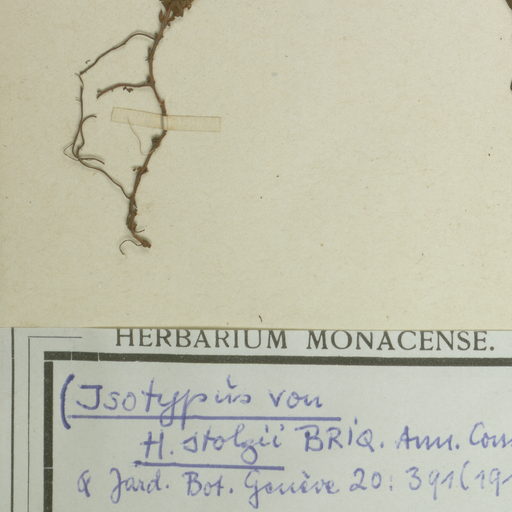 HERBARIUM MONACENSE.
(Isotypus von
H. stolzii BRIQ. Ann. Cons
& Jard. Bot. Genève 20: 391 (191